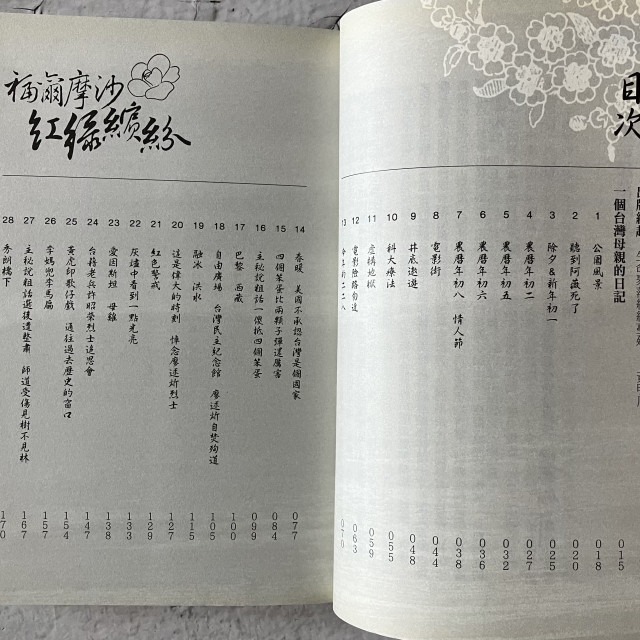 目次
一個台灣母親的日記 015
1 公園風景 018
2 聽到阿薇死了 020
3 除夕&新年初一 025
4 農曆年初二 027
5 農曆年初五 032
6 農曆年初六 036
7 農曆年初八 情人節 038
8 電影街 044
9 井底遨遊 048
10 科大療法 055
11 虛構地獄 059
12 電影險路勿近 063
13 今年的二二八 070
福爾摩沙
紅綠繽紛
14 春暖 美國不承認台灣是個國家 077
15 四個笨蛋比兩顆子彈還厲害 084
16 主秘說粗話一傻抵四個笨蛋 099
17 巴黎 西藏 100
18 自由廣場 台灣民主紀念館 廖述炘自焚殉道 105
19 融冰 洪水 115
20 這是偉大的時刻 悼念廖述炘烈士 127
21 紅色警戒 129
22 灰燼中看到一點光亮 133
23 愛因斯坦 母雞 138
24 台籍老兵許昭榮烈士追思會 147
25 黃虎印歌仔戲 通往過去歷史的窗口 154
26 李媽兜李馬扁 157
27 主秘說粗話退後遭整肅 師道受傷見樹不見林 167
28 秀朗橋下 170